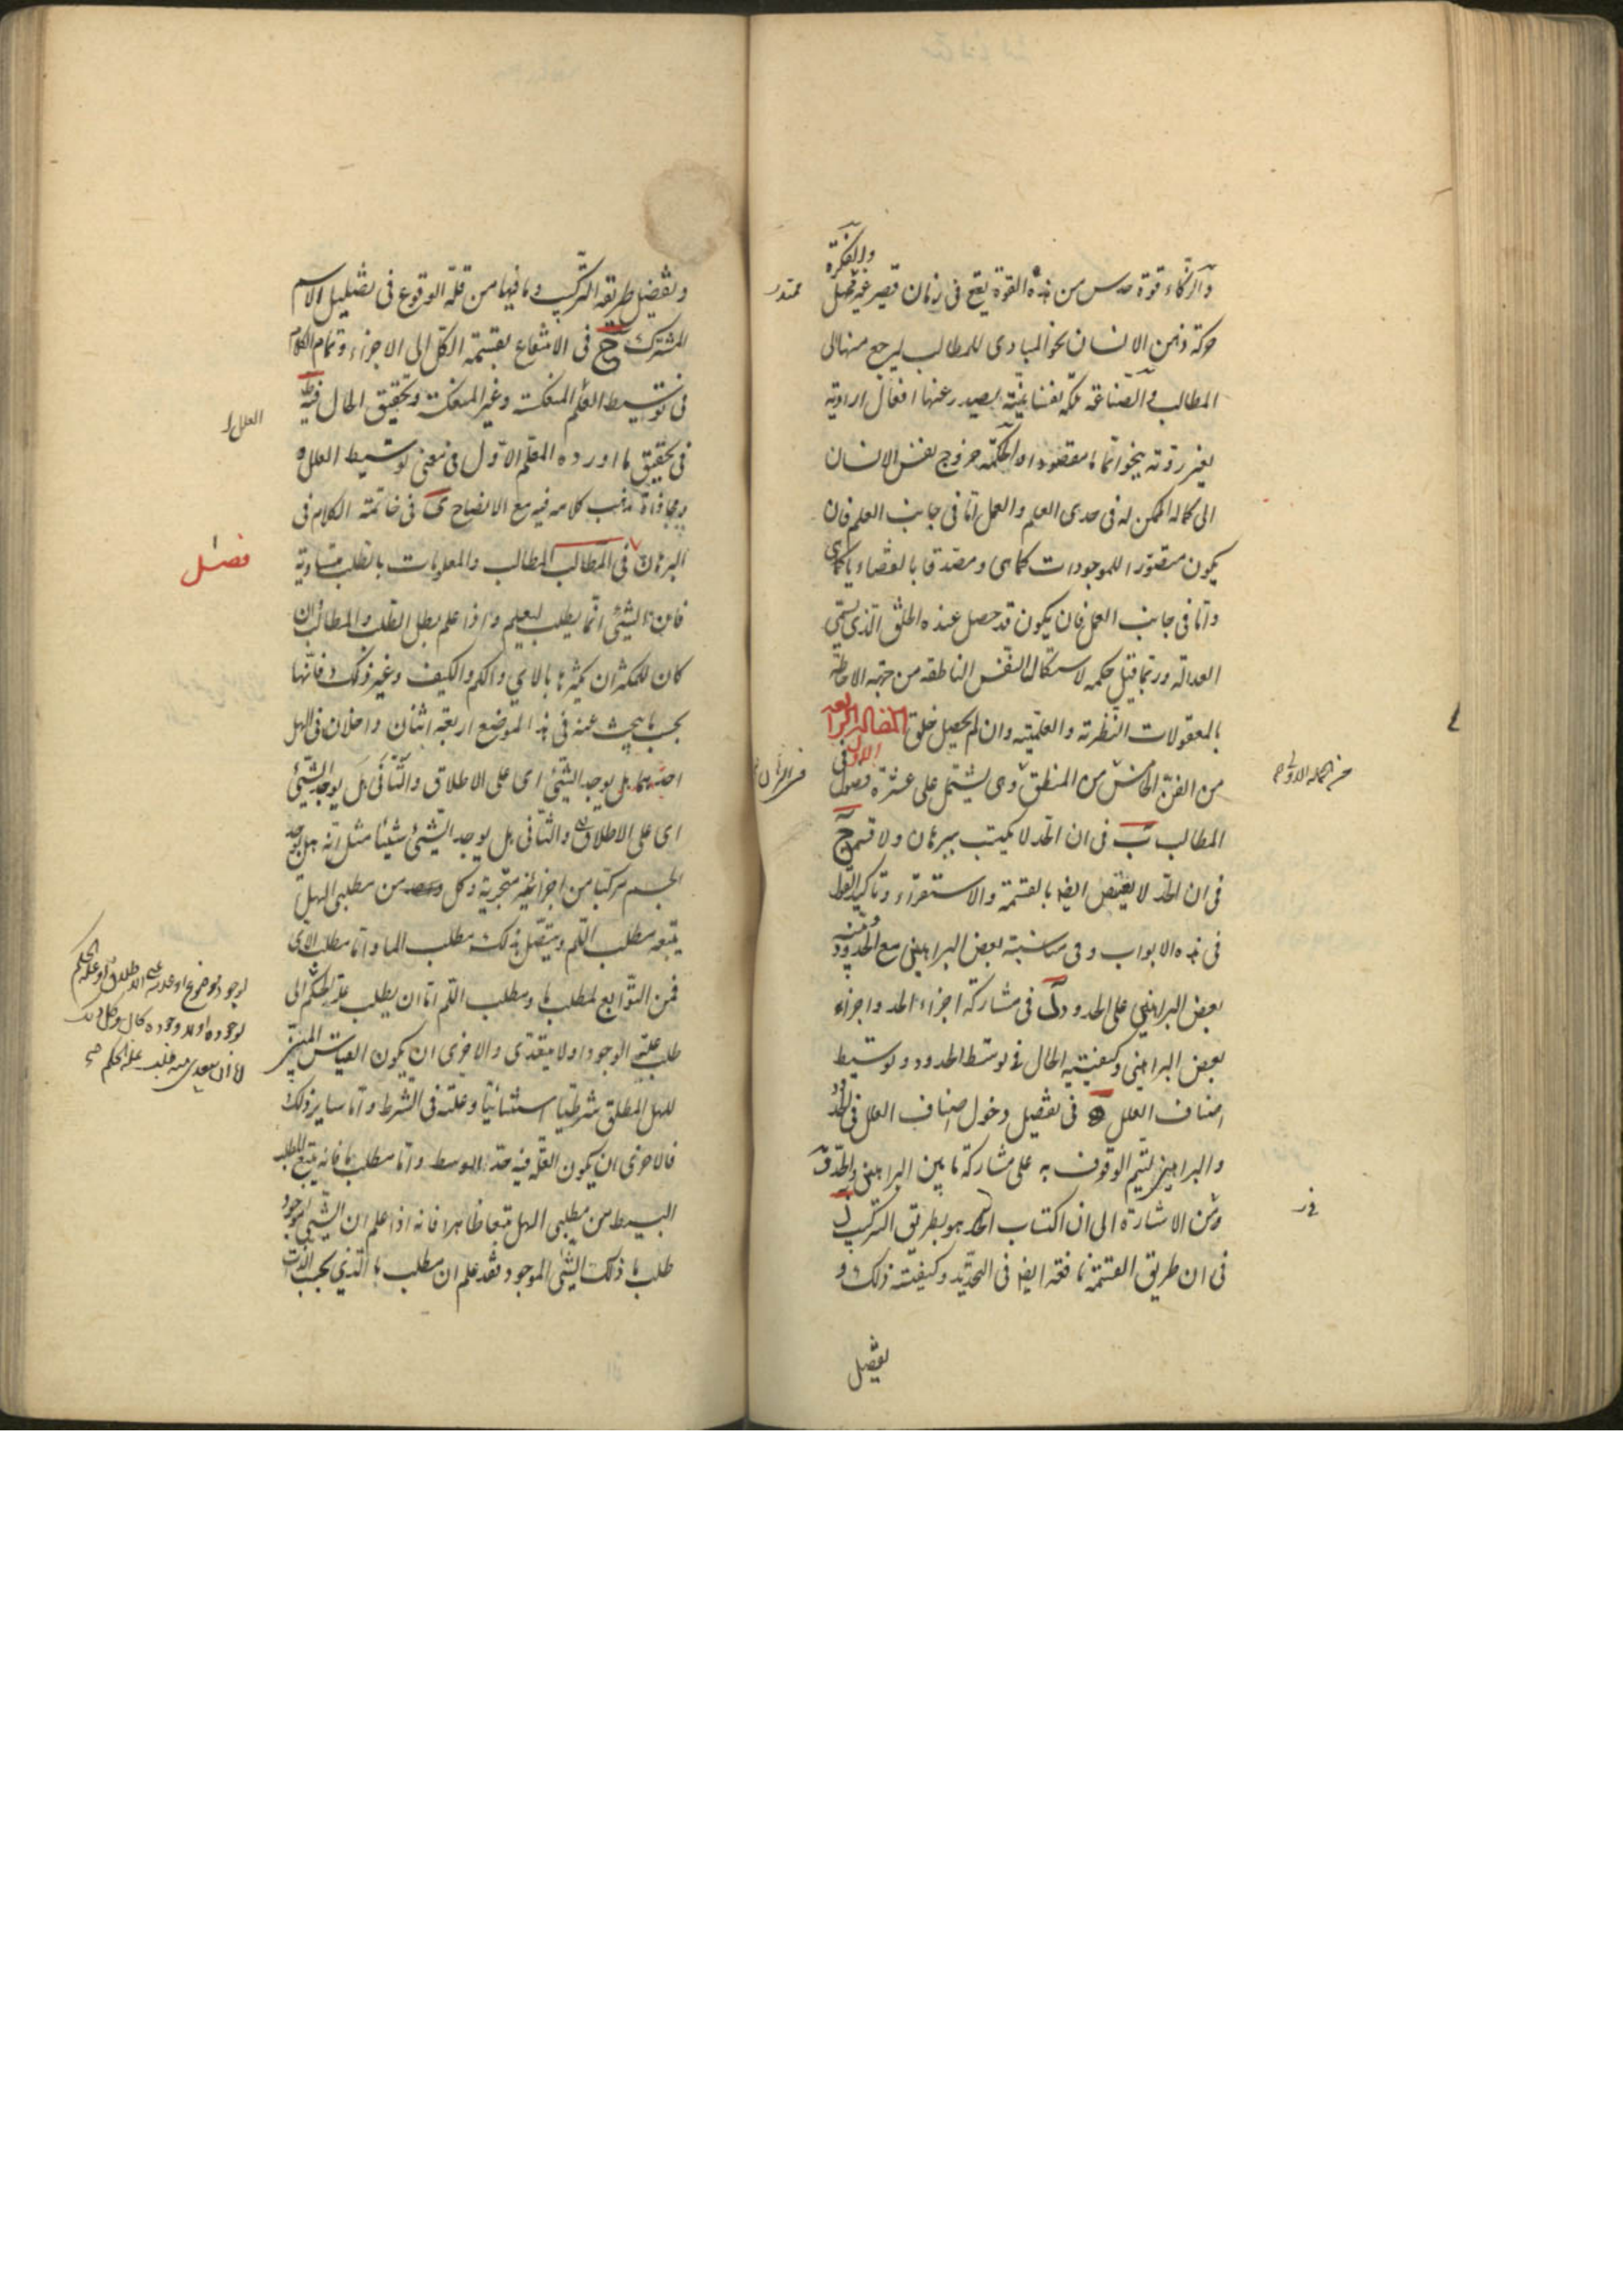 والفكرة
والذكاء قوة حدس من هذه القوة يقع في زمان قصير غير ممهل
ممتد
حركة ذهن الانسان نحو المبادى للمطالب ليرجع منها الى
المطالب والصناعة ملكة نفسانية يصدر عنها افعال ارادية
بغير روية ينحو تماما مقصودا والحكمة خروج نفس الانسان
الى كماله الممكن له في حدى العلم والعمل اما في جانب العلم فان
يكون متصورا للموجودات كما هى ومصدقا بالقضايا كما هى
واما في جانب العمل فان يكون قد حصل عنده الخلق الذى يسمى
العدالة وربما قيل حكمة لاستكمال النفس الناطقة من جهة الاحاطة
بالمعقولات النظرية والعلمية وان لم يحصل خلق المقالة الرابعة
من الفن الخامس من المنطق وهى يشتمل على عشرة فصول الاول في
المطالب ب في ان الحد لا يكتسب ببرهان ولا قسمة ج
في ان الحد لا يقتنص ايضا بالقسمة والاستقراء وتأكيد القول
في هذه الابواب وفى مناسبة بعض البراهين مع الحدود ومنه
بعض البراهين على الحدود د في مشاركة اجزاء الحد واجزاء
بعض البراهين وكيفية الحال في توسط الحدود وتوسيط
اصناف العلل ه في تفصيل دخول اصناف العلل في الحدود
والبراهين ليتم الوقوف به على مشاركة ما بين البراهين والحد و
ومن الاشارة الى ان اكتساب الحد هو بطريق التركيب ز
في ان طريق القسمة نافعة ايضا في التحديد وكيفية ذلك و
تفصيل
وتفضيل طريقة التركيب وما فيها من قلة الوقوع في تضليل الاسم
المشترك ح في الانتفاع بقسمة الكل الى الاجزاء وتمام الكلام
في توسيط العلل المنعكسة وغير المنعكسة وتحقيق الحال فيه ط
في تحقيق ما اورده المعلم الاول في معنى توسيط العلل
ومحاذاة مذهب كلامه فيه مع الايضاح ى في خاتمة الكلام في
البرهان في المطالب المطالب والمعلومات بالطلب متساوية
فصل
فان الشئ انما يطلب ليعلم واذا علم بطل الطلب والمطالب وان
كان للمكثر ان يكثرها بالاى والكم والكيف وغير ذلك فانها
بحسب ما يبحث عنه في هذا الموضع اربعة اثنان داخلان في الهل
احدهما هل يوجد الشئ اى على الاطلاق والثانى هل يوجد الشئ
اى على الاطلاق والثانى هل يوجد الشئ شيئا مثل انه هل يوجد
الجسم مركبا من اجزاء غير متجزية وكل من مطلبى الهل
يتبعه مطلب اللم ويتصل بذلك مطلب الما واما مطلب الاى
فمن التوابع لمطلب ما ومطلب اللم اما ان يطلب علة الحكم الى
طلب علته الوجود اولا يتعدى والاحرى ان يكون القياس المنتج
للهل المطلق شرطيا استثنائيا وعلته في الشرط واما سائر ذلك
فالاحرى ان يكون العلة فيه حدا اوسط واما مطلب ما فانه يتبع المطلب
البسيط من مطلبى الهل تبعا ظاهرا فانه اذا علم ان الشئ موجود
طلب ما ذلك الشئ الموجود فقد علم ان مطلب ما الذى بحسب الذات